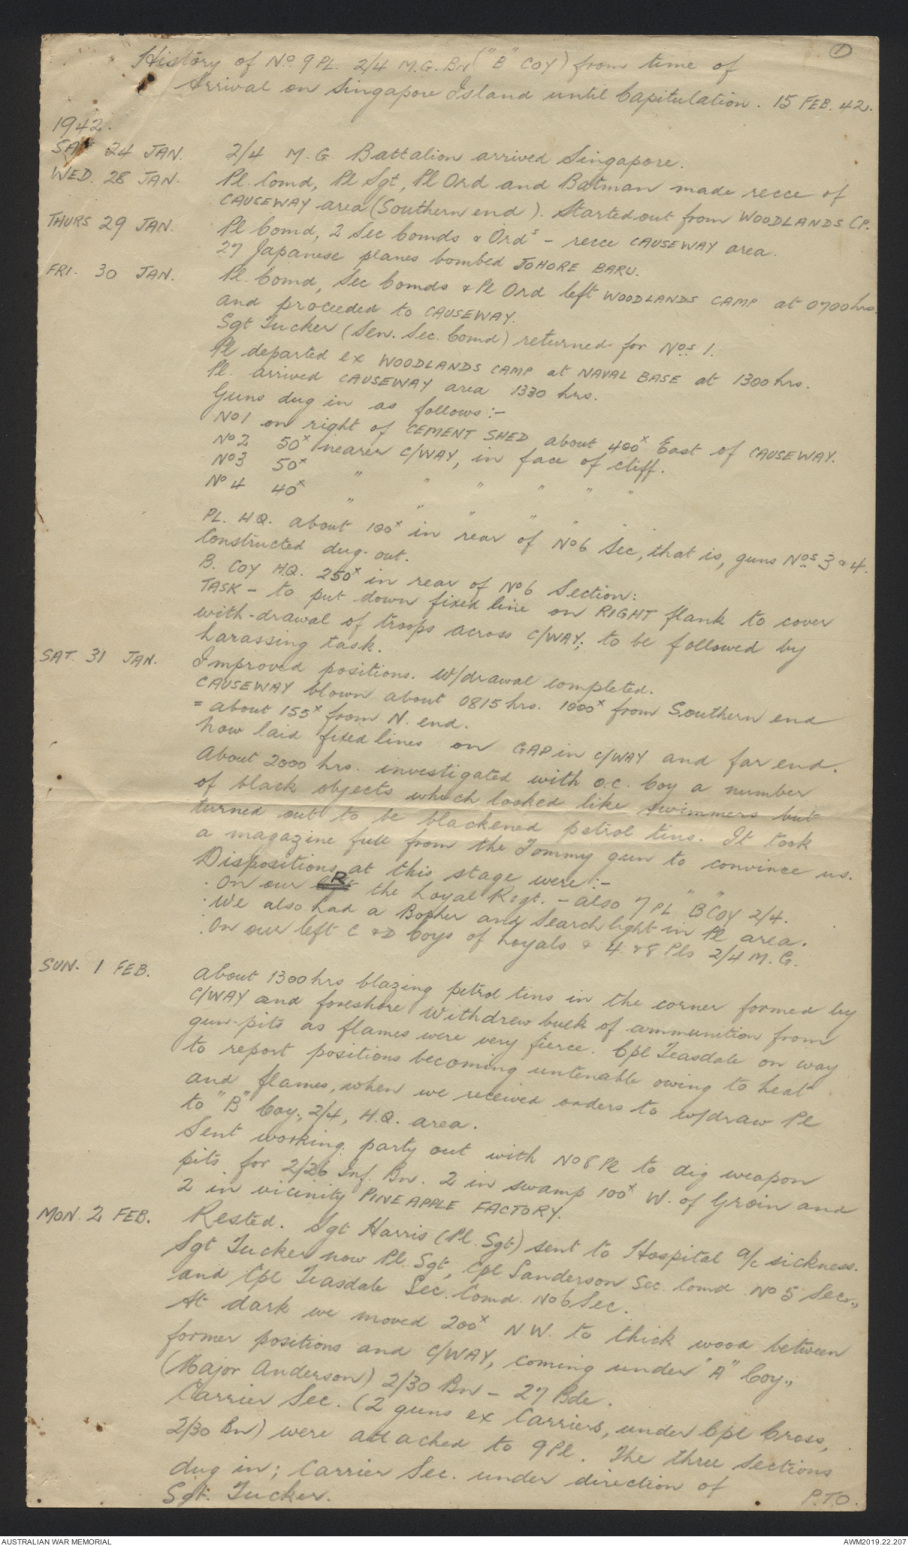 ①
History of No 9 PL. 2/4 M.G. Bn ("B" COY) from time of
Arrival on Singapore Island until Capitulation. 15 FEB. 42.
1942.
SAT 24 JAN. 2/4 M.G Battalion arrived Singapore.
WED. 28 JAN. Pl. Comd, Pl Sgt, Pl Ord and Batman made recce of
CAUSEWAY area (Southern end). Started out from WOODLANDS CP.
THURS 29 JAN. Pl Comd, 2 Sec Comds & Ords - recce CAUSEWAY area.
27 Japanese planes bombed JOHORE BARU.
FRI. 30 JAN. Pl. Comd, Sec Comds & Pl Ord left WOODLANDS CAMP at 0700 hrs
and proceeded to CAUSEWAY.
Sgt Tucker (Sen. Sec. Comd) returned for Nos 1.
Pl departed ex WOODLANDS CAMP at NAVAL BASE at 1300 hrs.
Pl. arrived CAUSEWAY area 1330 hrs.
Guns dug in as follows:-
No 1 on right of CEMENT SHED about 400x East of CAUSEWAY.
No 2 50x nearer C/WAY, in face of cliff.
No 3 50x " " " " " "
No 4 40x " " " " " "
PL. H.Q. about 100x in rear of No 6 Sec, that is, guns Nos 3 & 4.
Constructed dug-out.
B. COY H.Q. 250x in rear of No 6 Section:
TASK - to put down fixed line on RIGHT flank to cover
with-drawal of troops across C/WAY; to be followed by
harassing task.
SAT. 31 JAN. Improved positions. W/drawal completed.
CAUSEWAY blown about 0815 hrs. 1000x from Southern end
= about 155x from N. end.
Now laid fixed lines on GAP in C/WAY and far end.
About 2000 hrs. investigated with O.C. Coy a number
of black objects which looked like swimmers but
turned out to be blackened petrol tins. It took
a magazine full from the Tommy gun to convince us.
Dispositions at this stage were:-
. On our R. the Loyal Regt. - also 7 PL "B" COY 2/4.
. We also had a Bopher and Search light in Pl area.
. On our left C & D Coys of Loyals & 4 & 8 Pls 2/4 M.G.
SUN. 1 FEB. About 1300 hrs blazing petrol tins in the corner formed by
C/WAY and foreshore. Withdrew bulk of ammunition from
gun-pits as flames were very fierce. Cpl Teasdale on way
to report positions becoming untenable owing to heat
and flames, when we received orders to w/draw Pl
to "B" Coy., 2/4, H.Q. area.
Sent working party out with No 8 Pl to dig weapon
pits for 2/26 Inf. Bn. 2 in swamp 100x W. of Groin and
2 in vicinity PINEAPPLE FACTORY.
MON. 2 FEB. Rested. Sgt Harris (Pl. Sgt) sent to Hospital a/c sickness.
Sgt Tucker now Pl. Sgt, Cpl Sanderson Sec. Comd No 5 Sec.,
and Cpl Teasdale Sec. Comd. No 6 Sec.
At dark we moved 200x NW. to thick wood between
former positions and C/WAY, coming under "A" Coy.,
(Major Anderson) 2/30 Bn - 27 Bde.
Carrier Sec. (2 guns ex Carriers, under Cpl Cross,
2/30 Bn) were attached to 9 Pl. The three sections
dug in; Carrier Sec. under direction of
Sgt. Tucker.
P.T.O.
AUSTRALIAN WAR MEMORIAL
AWM2019.22.207